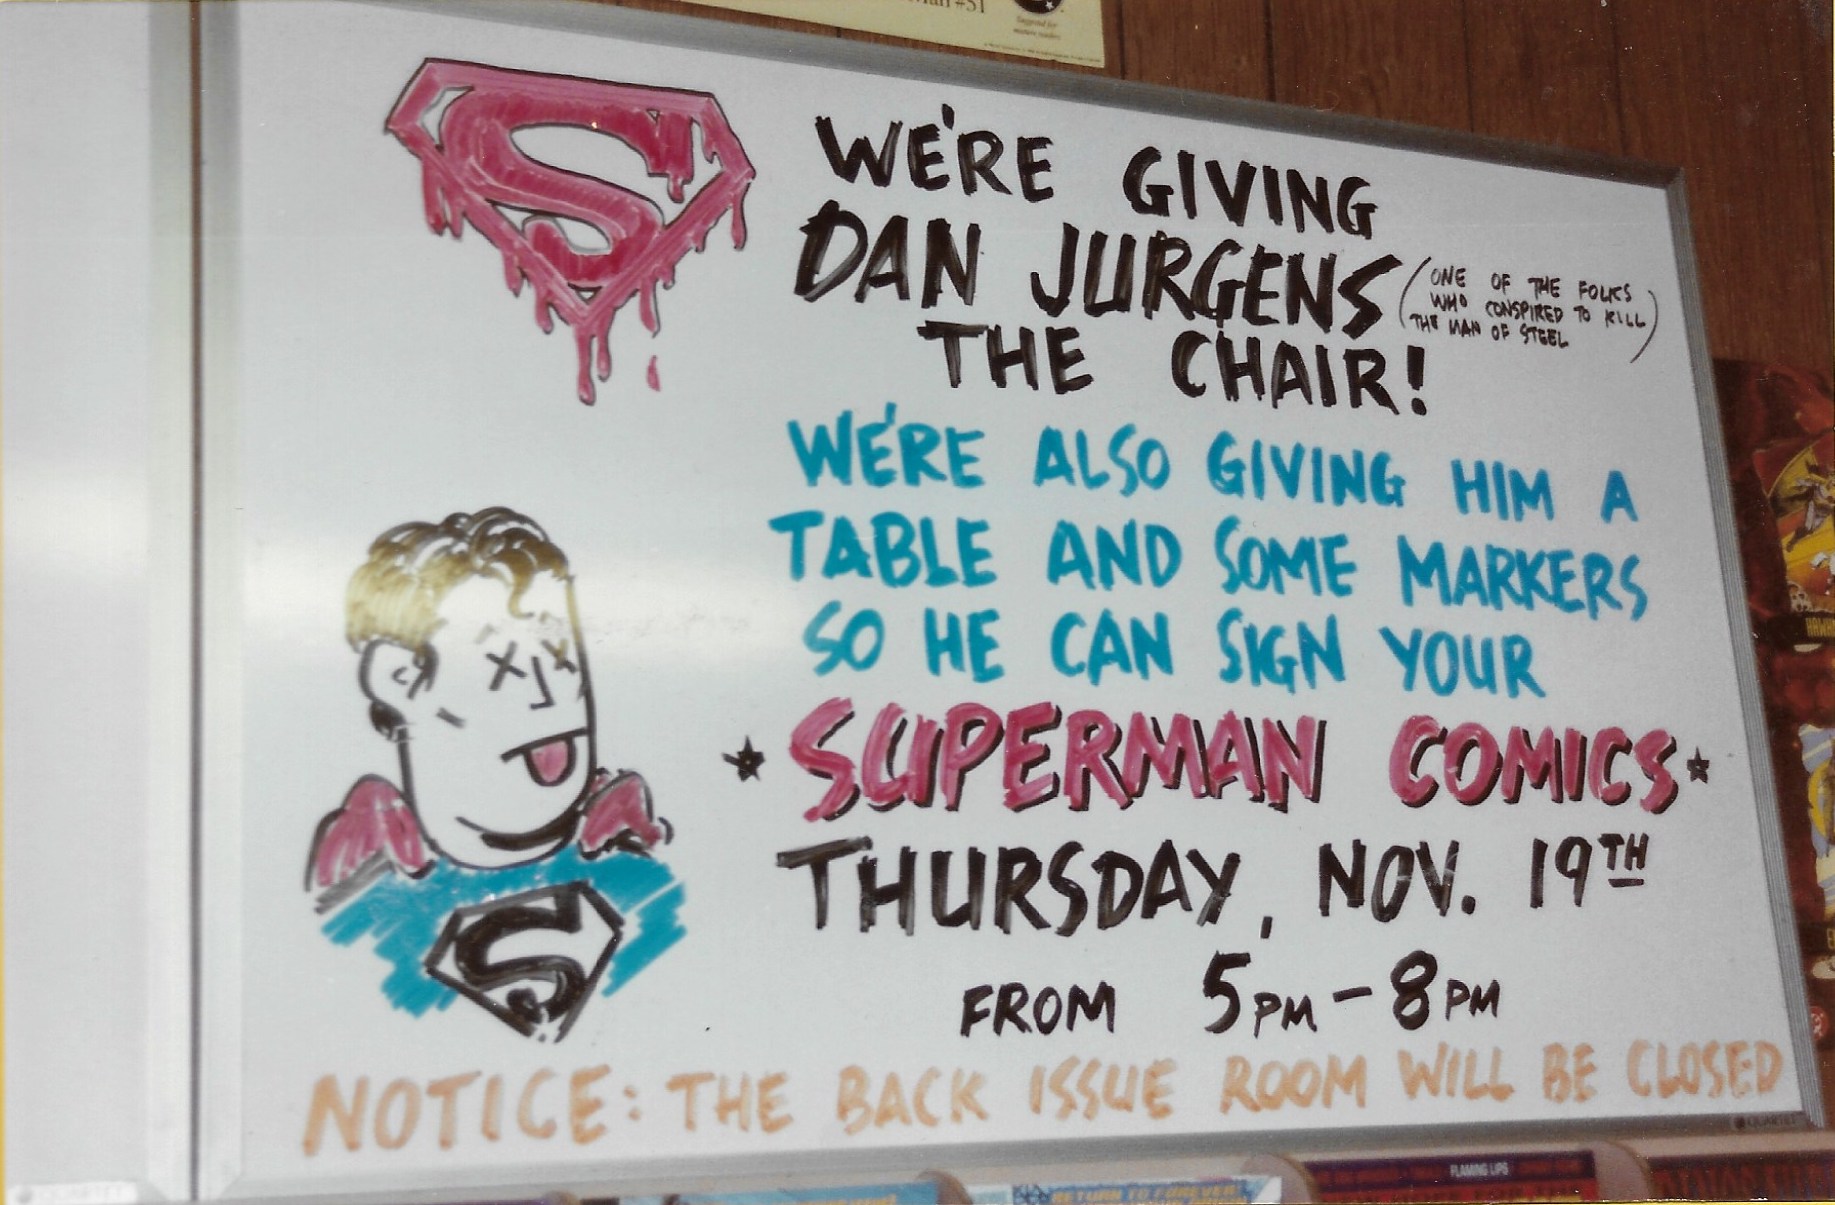 Man #51
Suggested for
mature readers
S
WE'RE GIVING
DAN JURGENS
(ONE OF THE FOLKS
WHO CONSPIRED TO KILL
THE MAN OF STEEL)
THE CHAIR!
WE'RE ALSO GIVING HIM A
TABLE AND SOME MARKERS
SO HE CAN SIGN YOUR
★ SUPERMAN COMICS ★
THURSDAY, NOV. 19TH
FROM 5PM-8PM
S
NOTICE: THE BACK ISSUE ROOM WILL BE CLOSED
QUARTET
QUARTET
FLAMING LIPS
RETURN TO FOREVER